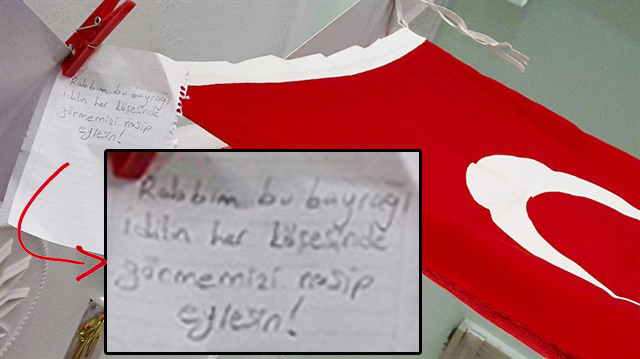 Rabbim bu bayragı
idlin her köşesinde
görmemizi nasip
eylesin!
Rabbim bu bayragı
idlin her köşesinde
görmemizi nasip
eylesin!